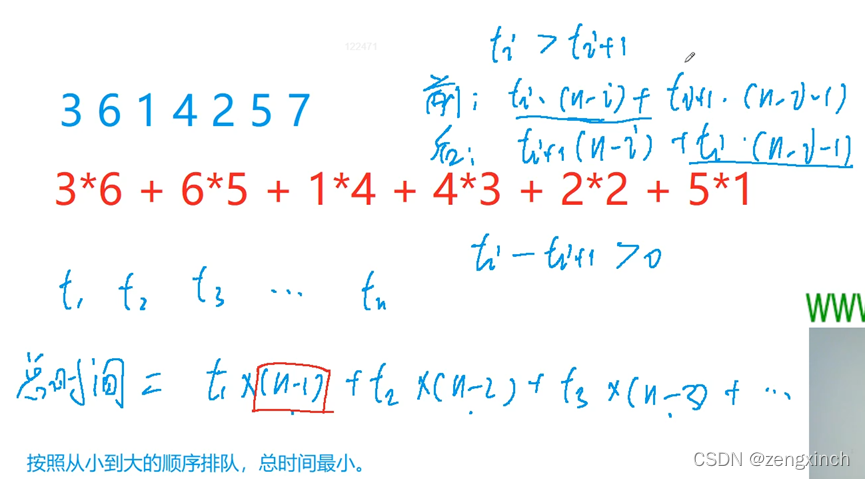 122471
tᵢ > tᵢ₊₁
3 6 1 4 2 5 7
前: tᵢ·(n-i) + tᵢ₊₁·(n-i-1)
后: tᵢ₊₁(n-i) + tᵢ·(n-i-1)
3*6 + 6*5 + 1*4 + 4*3 + 2*2 + 5*1
tᵢ - tᵢ₊₁ > 0
t₁ t₂ t₃ ... tₙ
WWW
总时间 = t₁ × (n-1) + t₂ × (n-2) + t₃ × (n-3) + ...
按照从小到大的顺序排队，总时间最小。
CSDN @zengxinch